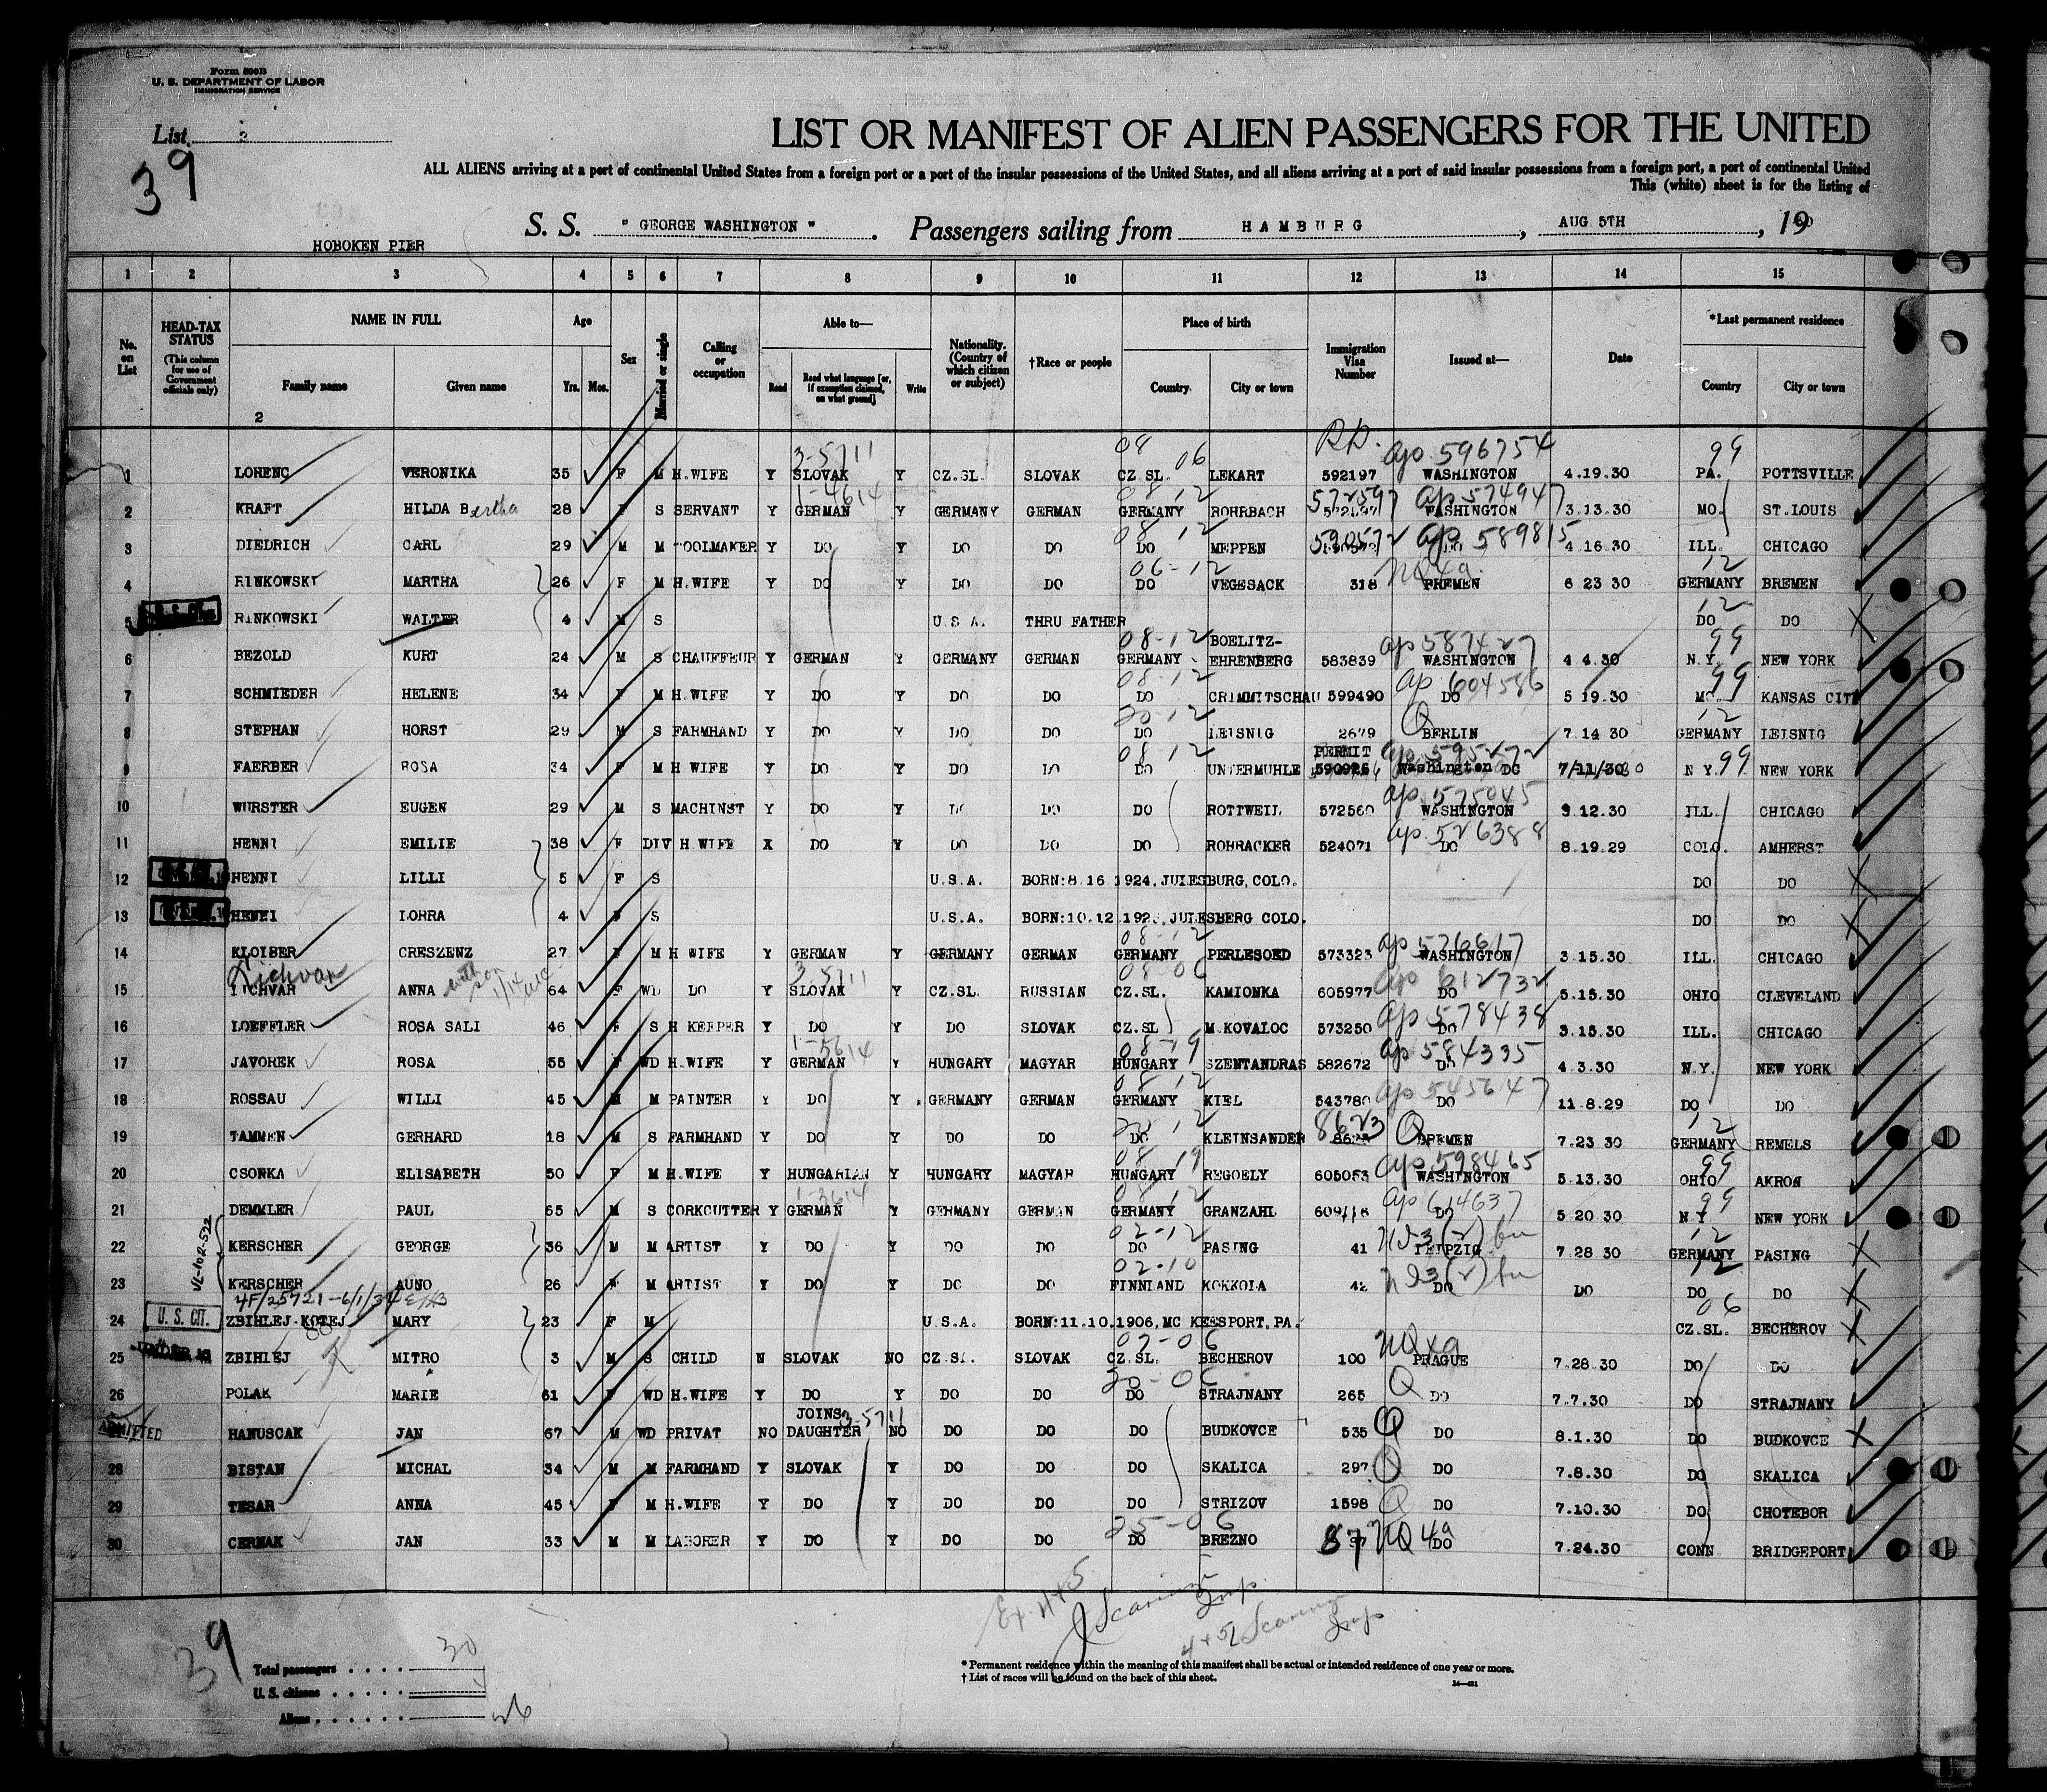 Form 500B
U. S. DEPARTMENT OF LABOR
IMMIGRATION SERVICE
List 2
39
LIST OR MANIFEST OF ALIEN PASSENGERS FOR THE UNITED
ALL ALIENS arriving at a port of continental United States from a foreign port or a port of the insular possessions of the United States, and all aliens arriving at a port of said insular possessions from a foreign port, a port of continental United
This (white) sheet is for the listing of
S. S. " GEORGE WASHINGTON " . Passengers sailing from HAMBURG , AUG 5TH , 1930
HOBOKEN PIER
1 2 3 4 5 6 7 8 9 10 11 12 13 14 15
No. on List
HEAD-TAX STATUS (This column for use of Government officials only)
NAME IN FULL Family name Given name
Age Yrs. Mos.
Sex
Married or single
Calling or occupation
Able to— Read Read what language [or, if exemption claimed, on what ground] Write
Nationality. (Country of which citizen or subject)
†Race or people
Place of birth Country City or town
Immigration Visa Number
Issued at—
Date
*Last permanent residence Country City or town
2
3-5711 08 06 ap 596754 99
1 LORENC VERONIKA 35 F M H.WIFE Y SLOVAK Y CZ.SL. SLOVAK CZ SL. LEKART 592197 WASHINGTON 4.19.30 PA. POTTSVILLE
1-4614 08-12 572597 ap 574947
2 KRAFT HILDA Bertha 28 F S SERVANT Y GERMAN Y GERMANY GERMAN GERMANY ROHRBACH WASHINGTON 3.13.30 MO. ST.LOUIS
08 12 590572 ap 589815
3 DIEDRICH CARL 29 M M TOOLMAKER Y DO Y DO DO DO MEPPEN DO 4.16.30 ILL. CHICAGO
06-12 12
4 RINKOWSKI MARTHA 26 F M H.WIFE Y DO Y DO DO DO VEGESACK 318 BREMEN 6 23 30 GERMANY BREMEN
12
5 RINKOWSKI WALTER 4 M S U.S.A. THRU FATHER DO DO
08-12 ap 587427 99
6 BEZOLD KURT 24 M S CHAUFFEUR Y GERMAN Y GERMANY GERMAN GERMANY BOELITZ-EHRENBERG 583839 WASHINGTON 4 4.30 N.Y. NEW YORK
08-12 ap 604586 99
7 SCHMIEDER HELENE 34 F M H.WIFE Y DO Y DO DO DO CRIMMITSCHAU 599490 DO 5 19.30 MO. KANSAS CITY
20-12 Q 12
8 STEPHAN HORST 29 M S FARMHAND Y DO Y DO DO DO LEISNIG 2679 BERLIN 7.14 30 GERMANY LEISNIG
08 12 PERMIT ap 595272 99
9 FAERBER ROSA 34 F M H WIFE Y DO Y DO DO DO UNTERMUHLE 590926 Washington DC 7/11/30 N Y. NEW YORK
ap 575045
10 WURSTER EUGEN 29 M S MACHINST Y DO Y DO DO DO ROTTWEIL 572560 WASHINGTON 3.12.30 ILL. CHICAGO
ap. 526388
11 HENNI EMILIE 38 F DIV H.WIFE X DO Y DO DO DO ROHRACKER 524071 DO 8.19.29 COLO. AMHERST
12 HENNI LILLI 5 F S U.S.A. BORN:8.16 1924, JULESBURG, COLO. DO DO
13 HENNI LORRA 4 F S U.S.A. JULESBERG COLO. DO DO
08-12 ap 576617
14 KLOIBER CRESZENZ 27 F M H WIFE Y GERMAN Y GERMANY GERMAN GERMANY PERLESOED 573323 WASHINGTON 3.15.30 ILL. CHICAGO
3-5711 08-06 ap 612732
15 LICHVAR ANNA 64 F WD DO Y SLOVAK Y CZ.SL. RUSSIAN CZ.SL. KAMIONKA 605977 DO 5.15.30 OHIO CLEVELAND
ap 578438
16 LOEFFLER ROSA SALI 46 F S H KEEPER Y DO Y DO SLOVAK CZ.SL M.KOVALOC 573250 DO 3.15.30 ILL. CHICAGO
08-19 ap 584335
17 JAVOREK ROSA 55 F WD H.WIFE Y GERMAN Y HUNGARY MAGYAR HUNGARY SZENTANDRAS 582672 DO 4.3.30 N.Y. NEW YORK
08 12 ap 545647
18 ROSSAU WILLI 45 M M PAINTER Y DO Y GERMANY GERMAN GERMANY KIEL 543780 DO 11.8.29 DO DO
20 12 8623 Q 12
19 TAMMEN GERHARD 18 M S FARMHAND Y DO Y DO DO DO KLEINSANDER BREMEN 7.23 30 GERMANY REMELS
08 19 ap 598465 99
20 CSONKA ELISABETH 50 F M H.WIFE Y HUNGARIAN Y HUNGARY MAGYAR HUNGARY REGOELY 605063 WASHINGTON 5.13.30 OHIO AKRON
08 12 ap 614637 99
21 DEMMLER PAUL 65 M S CORKCUTTER Y GERMAN Y GERMANY GERMAN GERMANY GRANZAHL DO 5 20 30 N Y NEW YORK
VL-102-522
02-12 12
22 KERSCHER GEORGE 36 M M ARTIST Y DO Y DO DO DO PASING 41 LEIPZIG 7.28 30 GERMANY PASING
02-10 12
23 KERSCHER AUNO 26 F M ARTIST Y DO Y DO DO FINNLAND KOKKOLA 42 DO DO DO DO
06
24 U. S. CIT. ZBIHLEJ-KOTEJ MARY 23 F M U.S.A. BORN:11.10.1906, MC KEESPORT, PA. CZ.SL. BECHEROV
02-06
25 ZBIHLEJ MITRO 3 M S CHILD N SLOVAK NO CZ.SL. SLOVAK CZ.SL. BECHEROV 100 PRAGUE 7.28.30 DO DO
20-06 Q
26 POLAK MARIE 61 F WD H.WIFE Y DO Y DO DO DO STRAJNANY 265 DO 7.7.30 DO STRAJNANY
ADMITTED HANUSCAK JAN 67 M WD PRIVAT NO JOINS DAUGHTER NO DO DO DO BUDKOVCE 535 Q DO 8.1.30 DO BUDKOVCE
28 BISTAN MICHAL 34 M M FARMHAND Y SLOVAK Y DO DO DO SKALICA 297 Q DO 7.8.30 DO SKALICA
29 TESAR ANNA 45 F M H.WIFE Y DO Y DO DO DO STRIZOV 1598 Q DO 7.10.30 DO CHOTEBOR
25-06
30 CERNAK JAN 33 M M LABORER Y DO Y DO DO DO BREZNO 87 DO 7.24.30 CONN BRIDGEPORT
39
Total passengers . . . . 30
U. S. citizens . . . . .
Aliens . . . . . . 26
* Permanent residence within the meaning of this manifest shall be actual or intended residence of one year or more.
† List of races will be found on the back of this sheet.